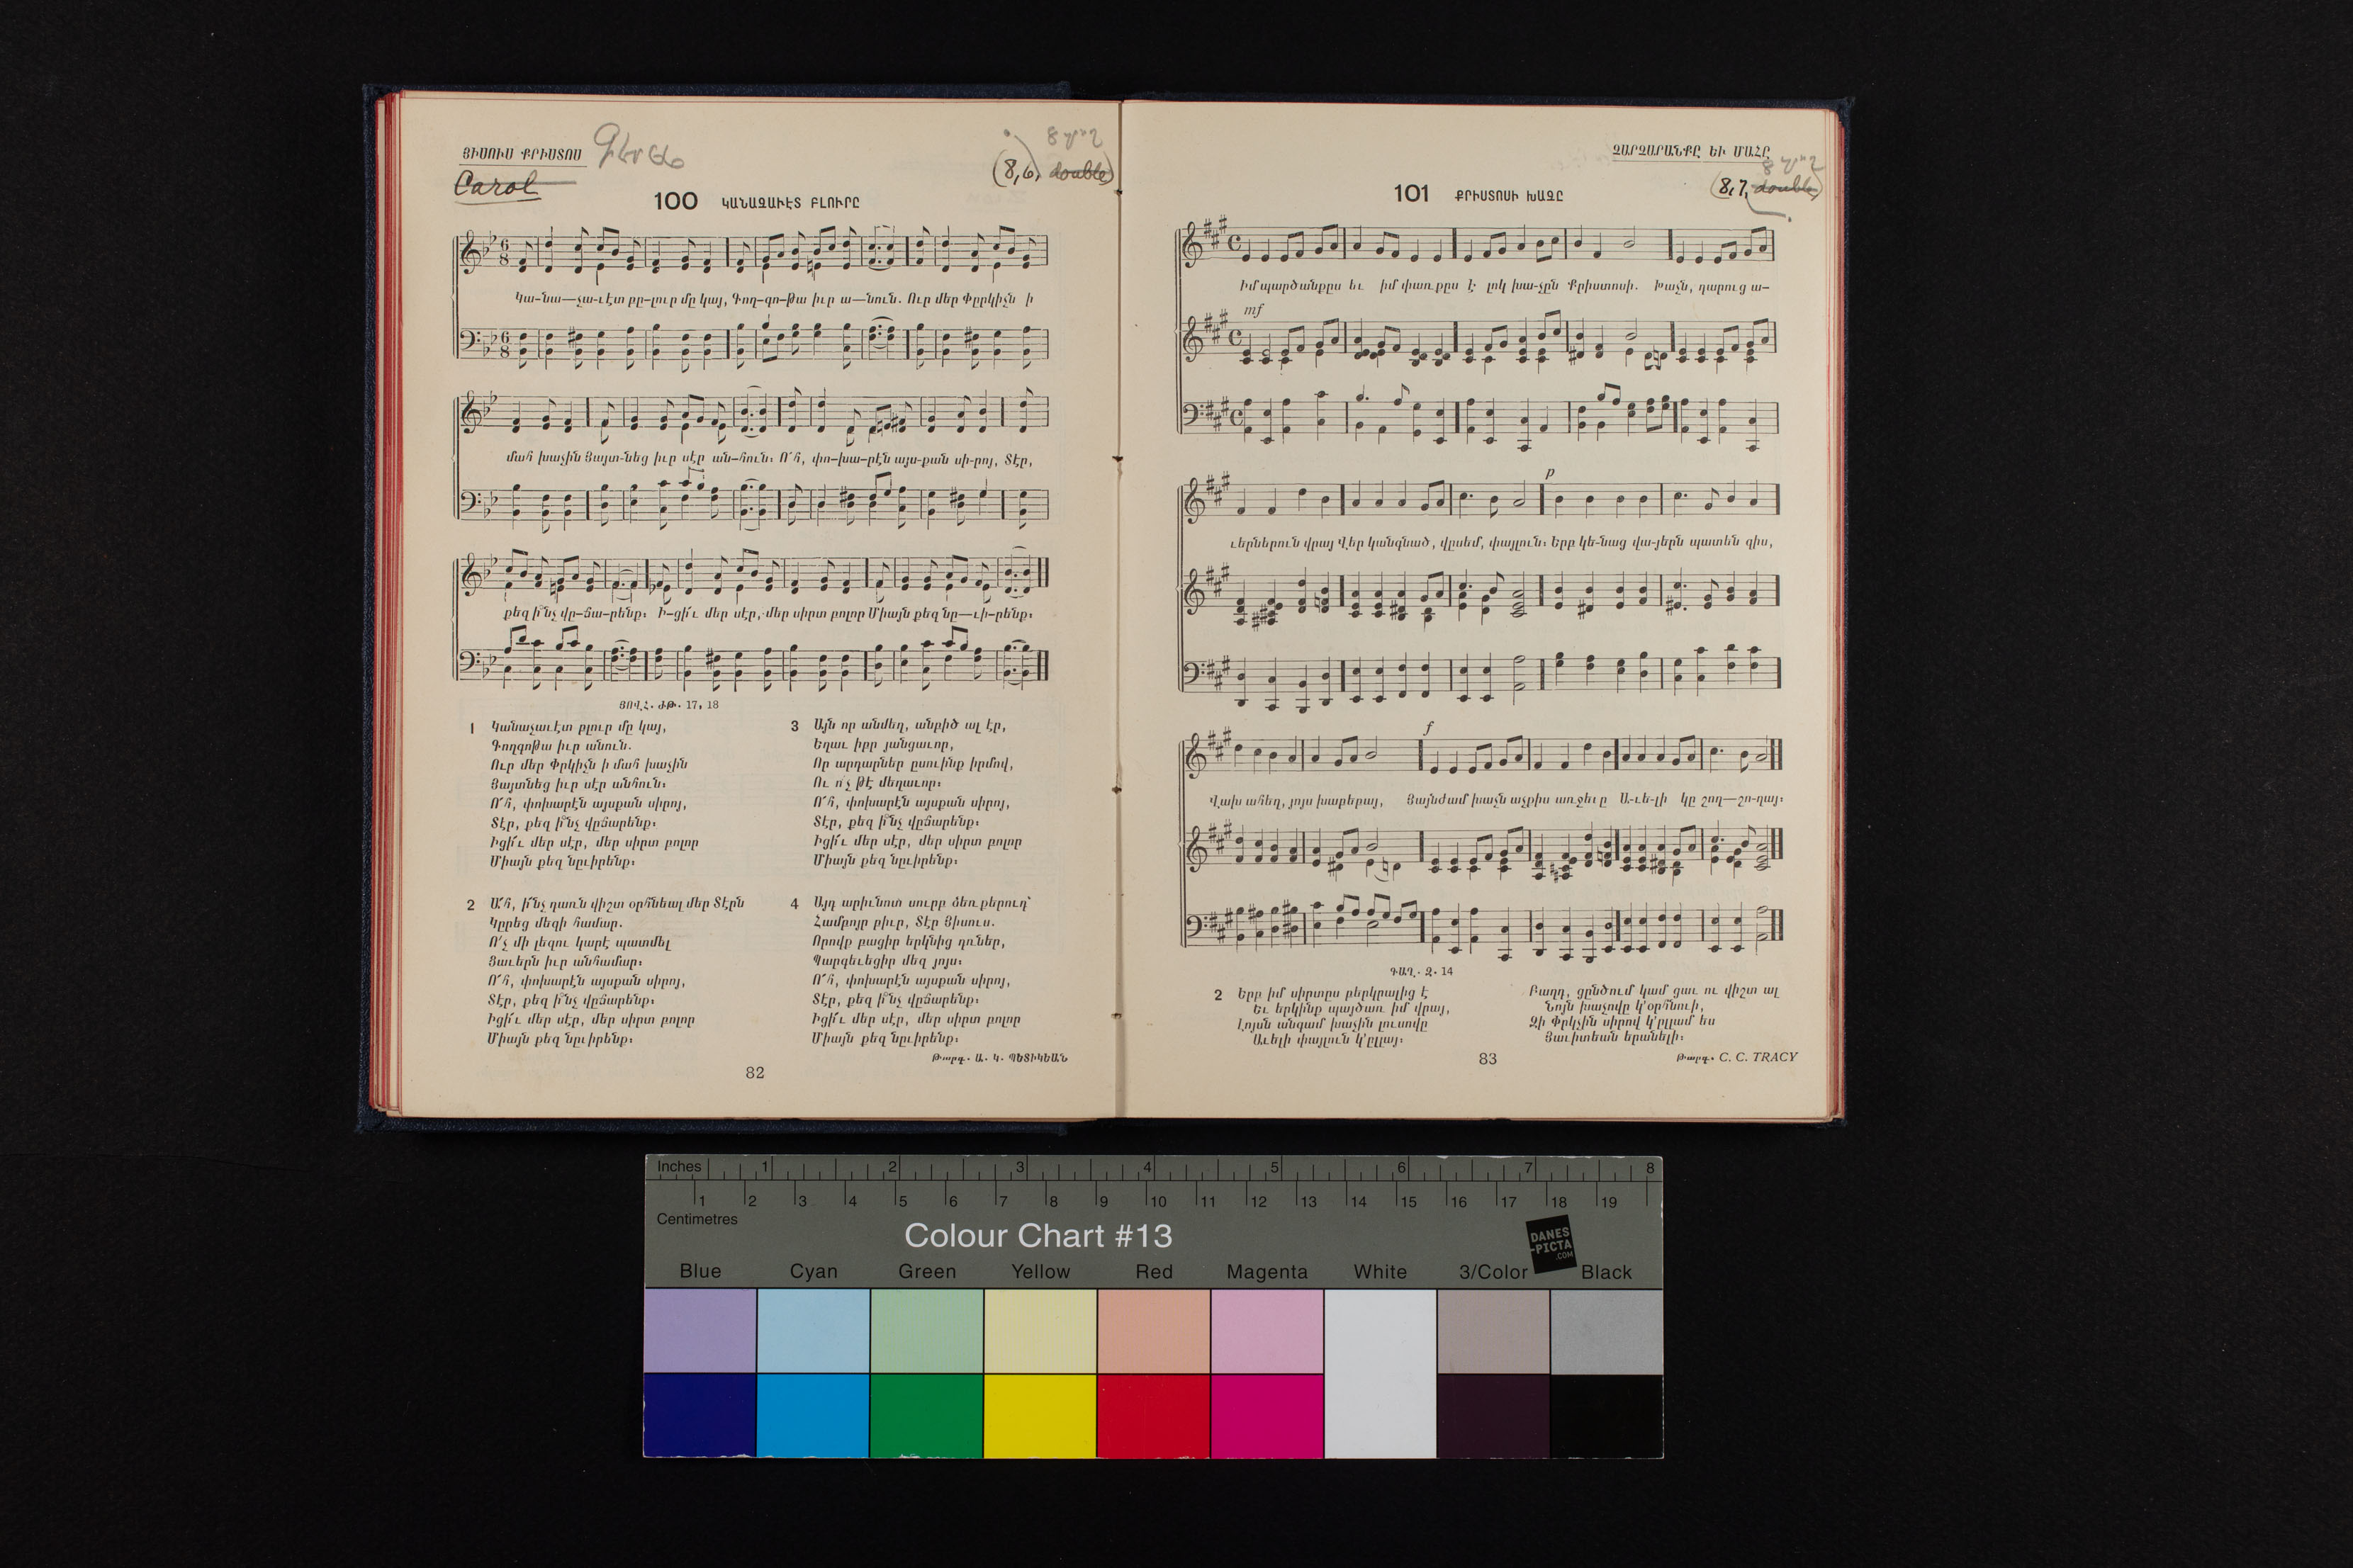 ՅԻՍՈՒՍ ՔՐԻՍՏՈՍ
Carol
(8,6, double)
100 ԿԱՆԱՉԱՒԷՏ ԲԼՈՒՐԸ
Կա-նա—չա-ւէտ բը-լուր մը կայ, Գող-գո-թա իւր ա—նուն. Ուր մեր Փըրկիչն ի
մահ խաչին Յայտ-նեց իւր սէր ան-հուն։ Ո՜հ, փո-խա-րէն այս-քան սի-րոյ, Տէր,
քեզ ի՞նչ վը-ճա-րենք։ Ի-ցի՜ւ մեր սէր, մեր սիրտ բոլոր Միայն քեզ նը—ւի-րենք։
ՅՈՎՀ. ԺԹ. 17, 18
1 Կանաչաւէտ բլուր մը կայ,
Գողգոթա իւր անուն.
Ուր մեր Փրկիչն ի մահ խաչին
Յայտնեց իւր սէր անհուն։
Ո՜հ, փոխարէն այսքան սիրոյ,
Տէր, քեզ ի՞նչ վըճարենք։
Իցի՜ւ մեր սէր, մեր սիրտ բոլոր
Միայն քեզ նըւիրենք։
2 Ա՜հ, ի՞նչ դառն վիշտ օրհնեալ մեր Տէրն
Կըրեց մեզի համար.
Ո՛չ մի լեզու կարէ պատմել
Ցաւերն իւր անհամար։
Ո՜հ, փոխարէն այսքան սիրոյ,
Տէր, քեզ ի՞նչ վըճարենք։
Իցի՜ւ մեր սէր, մեր սիրտ բոլոր
Միայն քեզ նըւիրենք։
3 Այն որ անմեղ, անբիծ ալ էր,
Եղաւ իբր յանցաւոր,
Որ արդարներ ըսուինք իրմով,
Ու ո՛չ թէ մեղաւոր։
Ո՜հ, փոխարէն այսքան սիրոյ,
Տէր, քեզ ի՞նչ վըճարենք։
Իցի՜ւ մեր սէր, մեր սիրտ բոլոր
Միայն քեզ նըւիրենք։
4 Այդ արիւնոտ սուրբ ձեռքերուդ՝
Համբոյր բիւր, Տէր Յիսուս.
Որովք բացիր երկնից դռներ,
Պարգեւեցիր մեզ յոյս։
Ո՜հ, փոխարէն այսքան սիրոյ,
Տէր, քեզ ի՞նչ վըճարենք։
Իցի՜ւ մեր սէր, մեր սիրտ բոլոր
Միայն քեզ նըւիրենք։
Թարգ. Ա. Կ. ՊԵՏԻԿԵԱՆ
82
ՉԱՐՉԱՐԱՆՔԸ ԵՒ ՄԱՀԸ
(8,7, double)
101 ՔՐԻՍՏՈՍԻ ԽԱՉԸ
Իմ պարծանքըս եւ իմ փառքըս է լոկ խա-չըն Քրիստոսի. Խաչն, դարուց ա-
mf
p
ւերներուն վրայ Վեր կանգնած, վըսեմ, փայլուն։ Երբ կե-նաց վա-յերն պատեն զիս,
f
Վախ ահեղ, յոյս խաբեբայ, Յայնժամ խաչն աչքիս առջեւը Ա-ւե-լի կը շող—շո-ղայ։
ԳԱՂ. Զ. 14
2 Երբ իմ սիրտըս բերկրալից է
Եւ երկինք պայծառ իմ վրայ,
Լոյսն անգամ խաչին լուսովը
Աւելի փայլուն կ՚ըլլայ։
Բաղդ, ցընծում կամ ցաւ ու վիշտ ալ
Նոյն խաչովը կ՚օրհնուի,
Զի Փրկչին սիրով կ՚ըլլամ ես
Յաւիտեան երանելի։
Թարգ. C. C. TRACY
83
Inches 1 2 3 4 5 6 7 8
1 2 3 4 5 6 7 8 9 10 11 12 13 14 15 16 17 18 19
Centimetres
Colour Chart #13
DANES
-PICTA
.COM
Blue Cyan Green Yellow Red Magenta White 3/Color Black